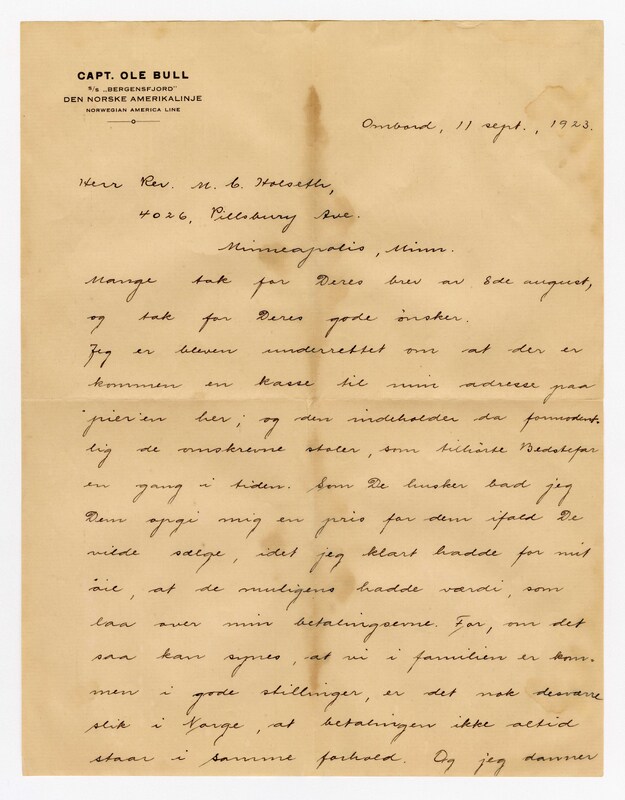 CAPT. OLE BULL
S/S „BERGENSFJORD"
DEN NORSKE AMERIKALINJE
NORWEGIAN AMERICA LINE
Ombord, 11 sept., 1923.
Herr Rev. M. C. Holseth,
4026, Pillsbury Ave.
Minneapolis, Minn.
Mange tak for Deres brev av 8de august,
og tak for Deres gode önsker.
Jeg er bleven underrettet om at der er
kommen en kasse til min adresse paa
'pier'en her; og den indeholder da formodent-
lig de omskrevne stoler, som tilhörte Bedstefar
en gang i tiden. Som De husker bad jeg
Dem opgi mig en pris for dem ifald De
vilde sælge, idet jeg klart hadde for mit
öie, at de muligens hadde værdi, som
laa over min betalingsevne. For, om det
saa kan synes, at vi i familien er kom-
men i gode stillinger, er det nok desværre
slik i Norge, at betalingen ikke altid
staar i samme forhold. Og jeg danner